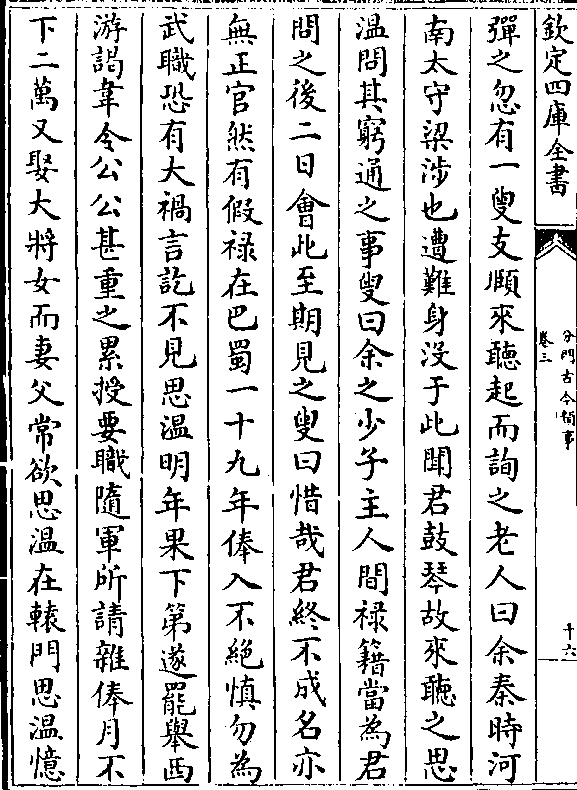 欽定四庫全書
分門古今類事
卷三
十六
彈之忽有一叟支頤來聽起而詢之老人曰余秦時河
南太守梁涉也遭難身没于此聞君鼓琴故來聽之思
溫問其窮通之事叟曰余之少子主人間祿籍當為君
問之後二日會此至期見之叟曰惜哉君終不成名亦
無正官然有假祿在巴蜀一十九年俸入不絕慎勿為
武職恐有大禍言訖不見思溫明年果下第遂罷舉西
游謁韋令公公甚重之累授要職隨軍所請雜俸月不
下二萬又娶大將女而妻父常欲思溫在轅門思溫憶